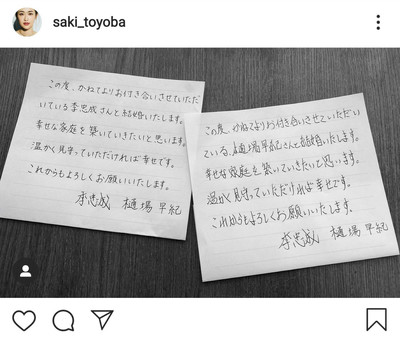 saki_toyoba
この度、かねてよりお付き合いさせていただ
いている李忠成さんと結婚いたします。
幸せな家庭を築いていきたいと思います。
温かく見守っていただければ幸せです。
これからもよろしくお願いいたします。
李忠成 樋場早紀
この度、かねてよりお付き合いさせていただい
ている、樋場早紀さんと結婚いたします。
幸せな家庭を築いていきたいと思います。
温かく見守っていただければ幸せです。
これからもよろしくお願いいたします。
李忠成 樋場早紀